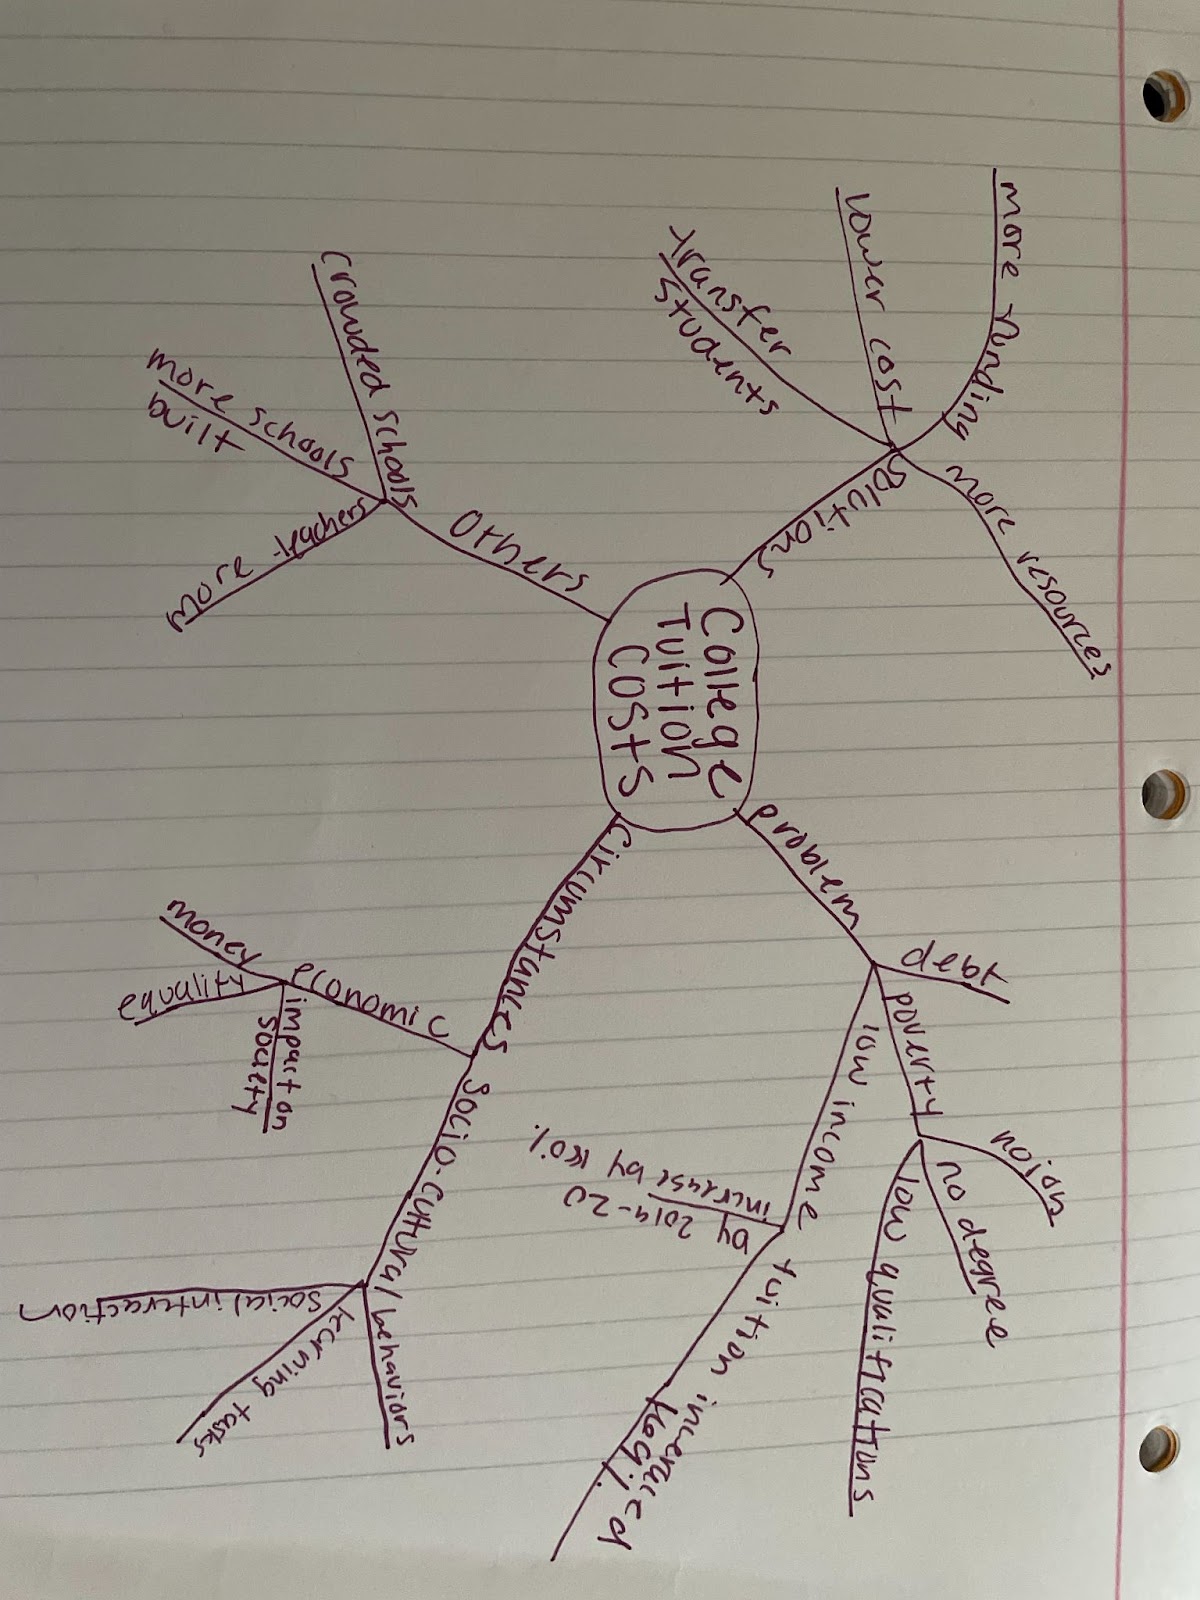 College
Tuition
Costs
solutions
transfer
students
lower cost
more funding
more resources
problem
debt
poverty
no job
no degree
low qualifications
low income
tuition
by 2019-20
increase by
Others
crowded schools
more schools
built
more teachers
circumstances
economic
money
equality
impact on
society
Socio-cultural
behaviors
learning tasks
social interaction